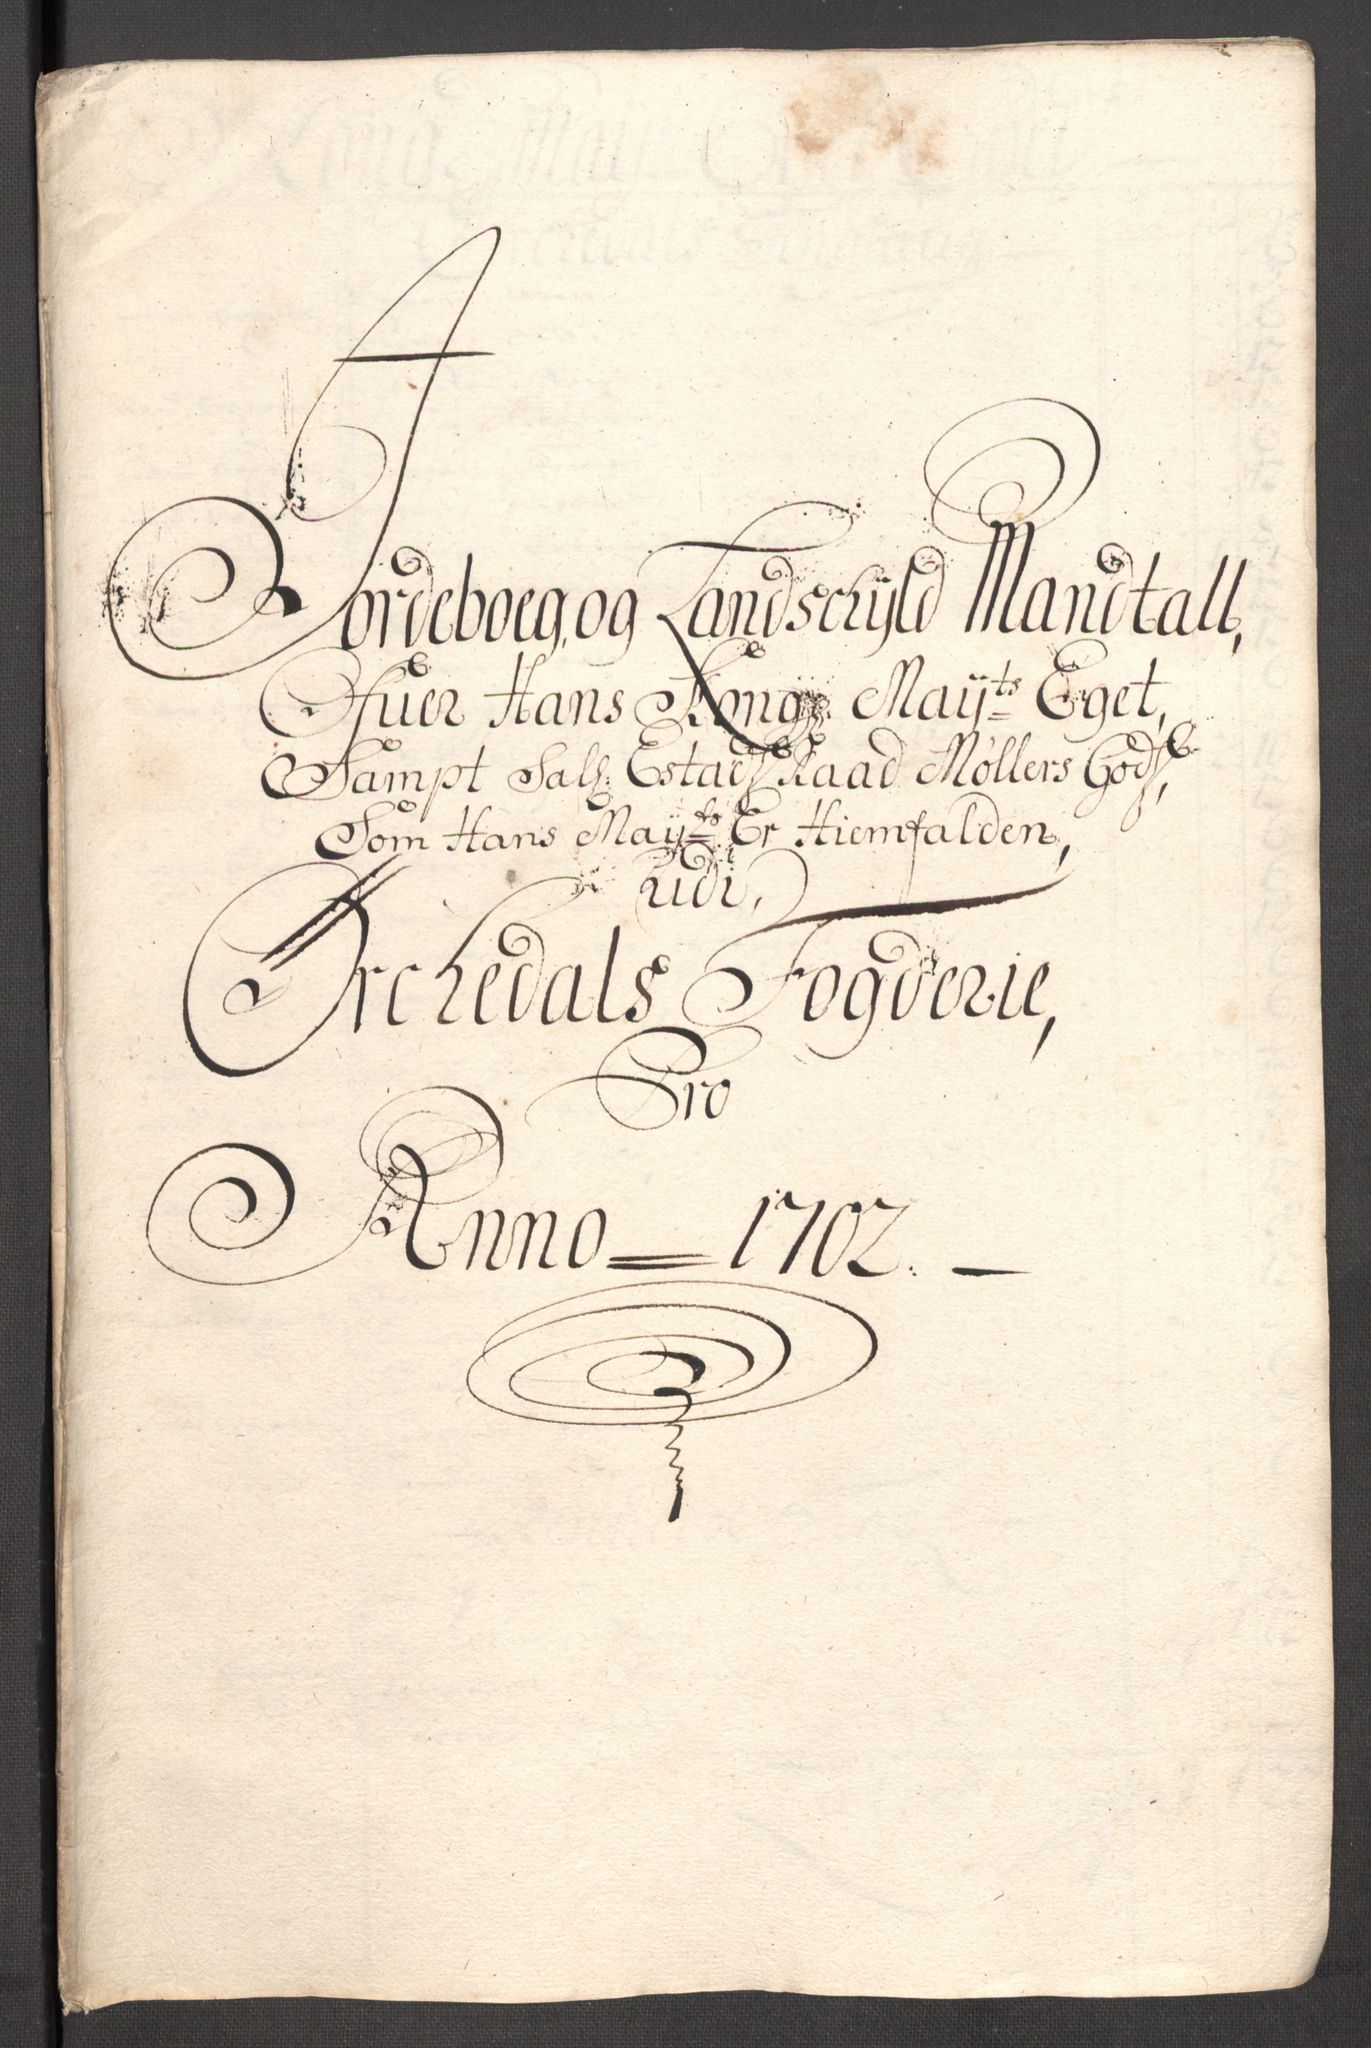 Jordeboeg, og Landschÿld Mandtall,
Ofuer Hans Kong: Maÿts Eget,
Sampt Salf: Estads Raad Møllers Godtz,
Som Hans Maÿts Er Hiemfalden,
udi,
Orchedals Fogderie,
Pro
Anno = 1702. –